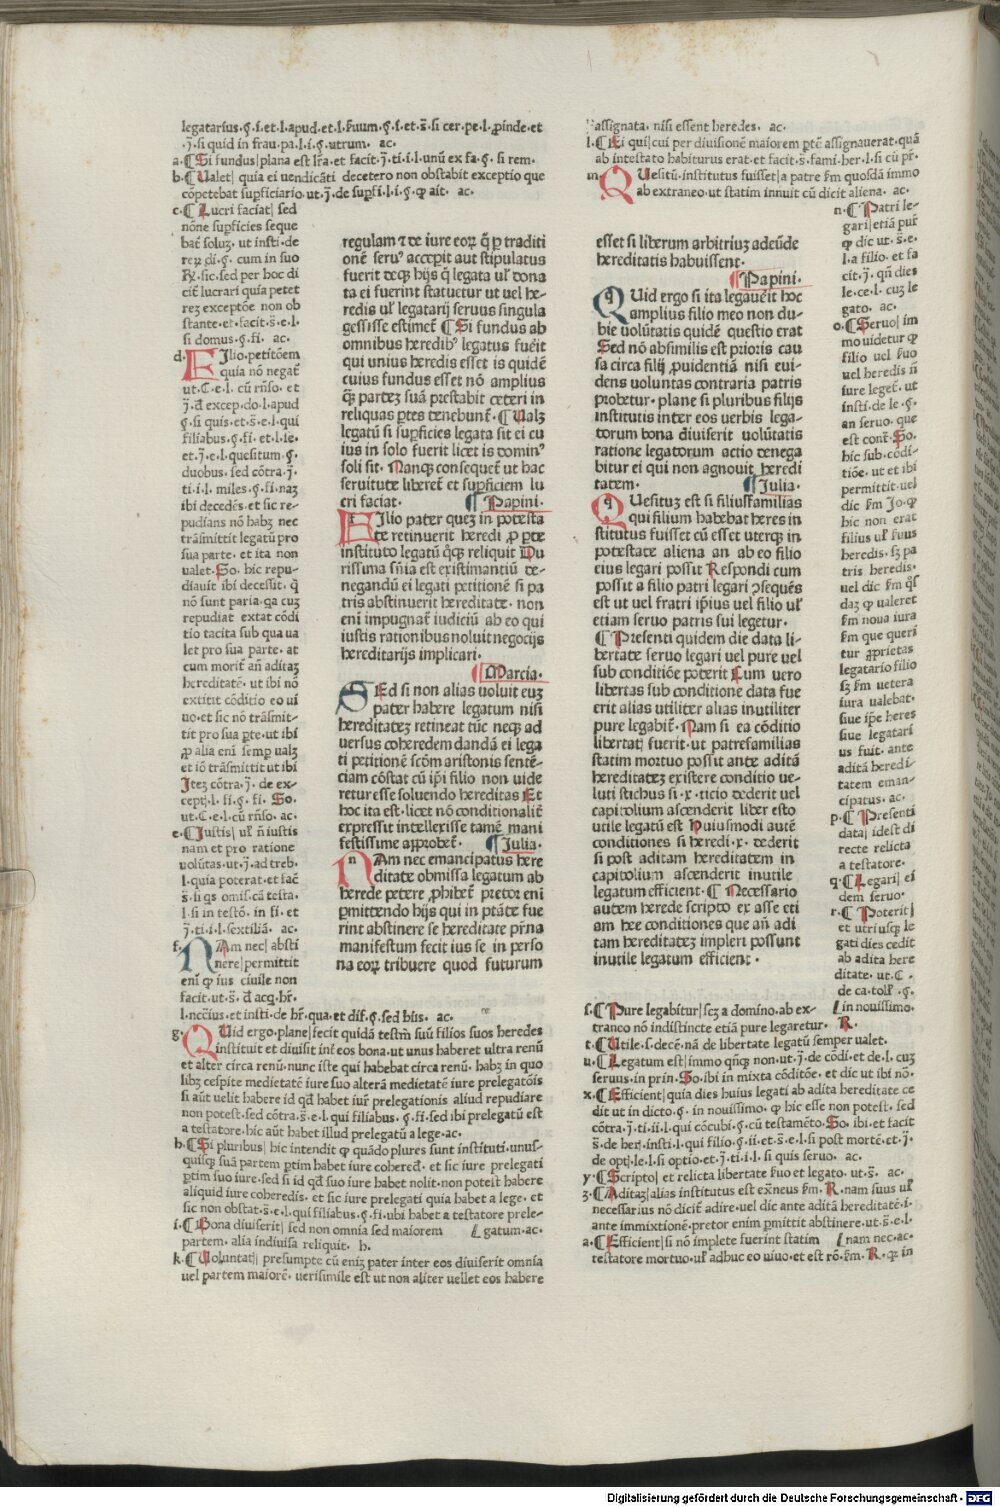 legatarius·§·i·et·l·apud·et·l·ẜuum·§·i·et·s̄·si cer·pe·l·ꝓinde·et
·ȷ̄·si quid in frau·pa·l·i·§·utrum· ac·
a·¶Si fundus|plana est lr̄a·et facit·ȷ̄·ti·i·l·unū ex fa·§· si rem·
b·¶Ualet| quia ei uendicāti decetero non obstabit exceptio que
cōpetebat suꝑficiario·ut·ȷ̄·de suꝑfi·l·i·§·ꝙ ait· ac·
c·¶Lucri faciat| sed
nōne suꝑficies seque
bat᷑ soluꝫ· ut insti·de
reꝝ di·§· cum in suo
sic·sed per hoc di
cit᷑ lucrari quia petet
reꝫ exceptōe non ob
stante·et·facit·s̄·e·l·
si domus·§·fi· ac·
d·Filio·petitōem
quia nō negat᷑
ut·C·e·l· cū rn̄so· et
ȷ̄·d̄ excep·do·l·apud
§·si quis·et·s̄·e·l·qui
filiabus·§·fi·et·l·ie·
et·ȷ̄·e·l·quesitum·§·
duobus·sed cōtra·ȷ̄·
ti·i·l· miles·§·fi·naꝫ
ibi decedēs·et sic re-
pudians nō habꝫ nec
trāsmittit legatū pro
sua parte· et ita non
ualet·So· hic repu-
diauit ibi decessit· q̄
nō sunt paria·qa cuꝫ
repudiat extat cōdi
tio tacita sub qua ua
let pro sua parte· at
cum morit᷑ an̄ aditaꝫ
hereditatē· ut ibi nō
extitit cōditio eo ui
uo·et sic nō trāsmit-
tit pro sua ꝑte·ut ibi
ꝓ alia eni semꝑ ualꝫ
et iō trāsmittit ut ibi
Iteꝫ cōtra·ȷ̄· de ex-
cept·l· fi·§· fi· So·
ut·C·e·l·cū rn̄so· ac·
e·¶Iustis| ul᷑ n̄ iustis
nam et pro ratione
uolūtas·ut·ȷ̄·ad treb·
l·quia poterat·et fac̄
s̄·si qs omis·cā testa·
l·si in testō· in fi·et
ȷ̄·ti·i·l·sextiliā· ac·
f·Nam nec| absti
nere|permittit
eni ꝙ ius ciuile non
facit·ut·s̄· d̄ acq·hr̄·
l·necc̄ius·et insti·de hr̄·qua·et dif·§·sed hiis· ac·
g·Quid ergo·plane|fecit quidā testm̄ suū filios suos heredes
instituit et diuisit int᷑ eos bona·ut unus haberet ultra renū
et alter circa renū·nunc iste qui habebat circa renū· habꝫ in quo
libꝫ cespite medietatē iure suo alterā medietatē iure prelegatōis
si aūt uelit habere id qd̄ habet iur᷑ prelegationis aliud repudiare
non potest·sed cōtra·s̄·e·l· qui filiabus·§·fi·sed ibi prelegatū est
a testatore·hic aūt habet illud prelegatū a lege·ac·
h·¶Si pluribus| hic intendit ꝙ quādo plures sunt instituti·unus-
quisqꝫ suā partem ꝑtim habet iure cohered᷑· et sic iure prelegati
ꝑtim suo iure·sed si id qd̄ suo iure habet nolit·non potest habere
aliquid iure coheredis·et sic iure prelegati quia habet a lege·et
sic non obstat·s̄·e·l·qui filiabus·§·fi·ubi habet a testatore prele-
i·¶Bona diuiserit| sed non omnia sed maiorem gatum·ac·
partem· alia indiuisa reliquit· h·
k·¶Uoluntati| presumpte cū eniꝫ pater inter eos diuiserit omnia
uel partem maiorē· uerisimile est ut non aliter uellet eos habere
regulam ⁊ de iure eoꝝ q̄ ꝑ traditi
onē seru᷒ accepit aut stipulatus
fuerit deqꝫ hijs q̄ legata ul᷑ dona
ta ei fuerint statuetur ut uel he-
redis ul᷑ legatarij seruus singula
gessisse estimet᷑ ¶Si fundus ab
omnibus heredib᷒ legatus fuēit
qui unius heredis esset is quidē
cuius fundus esset nō amplius
q̄ꝫ partez suā prestabit ceteri in
reliquas ꝑtes tenebunt᷑·¶Ualꝫ
legatū si suꝑficies legata sit ei cu
ius in solo fuerit licet is domin᷒
soli sit· Nanqꝫ consequet᷑ ut hac
seruitute liberet᷑ et suꝑficiem lu
cri faciat· ¶Papini·
Filio pater quez in potesta
te retinuerit heredi ꝓ ꝑte
instituto legatū qꝫ reliquit Du
rissima sn̄ia est existimantiū de-
negandū ei legati petitionē si pa
tris abstinuerit hereditate· non
eni impugnat᷑ iudiciū ab eo qui
iustis rationibus noluit negocijs
hereditarijs implicari·
¶Marcia·
Sed si non alias uoluit euꝫ
pater habere legatum nisi
hereditateꝫ retineat tūc neqꝫ ad
uersus coheredem dandā ei lega
ti petitionē scōm aristonis sentē-
ciam cōstat cū ip̄i filio non uide
retur esse soluendo hereditas Et
hoc ita est·licet nō conditionalit᷑
expressit intellexisse tamē mani
festissime approbet᷑· ¶Julia·
Nam nec emancipatus here
ditate obmissa legatum ab
herede petere ꝓhibet᷑ pretor eni
ꝑmittendo hijs qui in ptāte fue
rint abstinere se hereditate pr̄na
manifestum fecit ius se in perso
na eoꝝ tribuere quod futurum
esset si liberum arbitriuꝫ adeūde
hereditatis habuissent·
¶Papini·
Quid ergo si ita legauēit hoc
amplius filio meo non du-
bie uolūtatis quidē questio erat
Sed nō absimilis est prioris cau
sa circa filij ꝓuidentiā nisi eui-
dens uoluntas contraria patris
probetur· plane si pluribus filijs
institutis inter eos uerbis lega-
torum bona diuiserit uolūtatis
ratione legatorum actio denega
bitur ei qui non agnouit heredi
tatem· ¶Julia·
Quesituꝫ est si filiusfamilias
qui filium habebat heres in
stitutus fuisset cū esset uterqꝫ in
potestate aliena an ab eo filio
eius legari possit Respondi cum
possit a filio patri legari ꝯsequēs
est ut uel fratri ip̄ius uel filio ul᷑
etiam seruo patris sui legetur·
¶Presenti quidem die data li-
bertate seruo legari uel pure uel
sub conditiōe poterit Cum uero
libertas sub conditione data fue
erit alias utiliter alias inutiliter
pure legabit᷑· Nam si ea cōditio
libertati fuerit·ut patrefamilias
statim mortuo possit ante aditā
hereditateꝫ existere conditio ue-
luti stichus si·x·ticio dederit uel
capitolium ascenderit liber esto
utile legatū est Huiusmodi autē
conditiones si heredi·x· dederit
si post aditam hereditatem in
capitolium ascenderit inutile
legatum efficient·¶ Necessario
autem herede scripto ex asse eti
am hee conditiones que an̄ adi
tam hereditateꝫ impleri possunt
inutile legatum efficient·
assignata· nisi essent heredes· ac·
l·¶Ei qui|cui per diuisionē maiorem ꝑtē assignauerat·quā
ab intestato habiturus erat·et facit·s̄·fami·her·l·si cū pr̄·
m·Quesitū·institutus fuisset|a patre ẜm quosdā immo
ab extraneo·ut statim innuit cū dicit aliena· ac·
n·¶Patri le-
gari|etiā pur᷑
ꝙ dic ut·s̄·e·
l·a filio·et fa
cit·ȷ̄·qn̄ dies
le·ce·l· cuꝫ le
gato· ac·
o·¶Seruo| im
mo uidetur ꝙ
filio uel ẜuo
uel heredis n̄
iure leget᷑· ut
insti·de le·§·
an seruo· que
est cont᷑·So·
hic sub cōdi-
tiōe· ut et ibi
permittit·uel
dic ẜm Jo·ꝙ
hic non erat
filius ul᷑ ẜuus
heredis·sꝫ pa
tris heredis·
uel dic ẜm qs̄
daꝫ ꝙ ualeret
ẜm noua iura
ẜm que queri
tur ꝓprietas
legatario filio
sꝫ ẜm uetera
iura ualebat·
siue ip̄e heres
siue legatari
us fuit· ante
aditā heredi-
tatem eman-
cipatus· ac·
p·¶Presenti
data| idest di
recte relicta
a testatore·
q·¶Legari| ei
dem seruo·
r·¶Poterit|
et utriusqꝫ le
gati dies cedit
ab adita here
ditate· ut·C·
de ca·toll᷑·§·
in nouissimo·
s·¶Pure legabitur| scꝫ a domino·ab ex-
traneo nō indistincte etiā pure legaretur· R·
t·¶Utile·s·decē·nā de libertate legatū semper ualet·
u·¶Legatum est| immo qn̄qꝫ non·ut·ȷ̄·de cōdi·et de·l·cuꝫ
seruus·in prin·So·ibi in mixta cōditōe·et dic ut ibi nō·
x·¶Efficient| quia dies huius legati ab adita hereditate ce
dit ut in dicto·§· in nouissimo· ꝙ hic esse non potest· sed
cōtra·ȷ̄·ti·ii·l·qui cōcubi·§·cū testamēto·So· ibi·et facit
s̄·de her·insti·l·qui filio·§·ii·et·s̄·e·l·si post mortē·et·ȷ̄·
de opt·le·l·si optio·et·ȷ̄·ti·i·l·si quis seruo· ac·
y·¶Scripto| et relicta libertate ẜuo et legato·ut·s̄· ac·
z·¶Aditaꝫ| alias institutus est exn̄eus ẜm·R·nam suus ul᷑
necessarius nō dicit᷑ adire·uel dic ante aditā hereditatē·i·
ante immixtionē·pretor enim ꝑmittit abstinere·ut·s̄·e·l·
a·¶Efficient| si nō implete fuerint statim nam nec·ac·
testatore mortuo·ul᷑ adhuc eo uiuo·et est rō·ẜm·R·ꝙ in
Digitalisierung gefördert durch die Deutsche Forschungsgemeinschaft · DFG